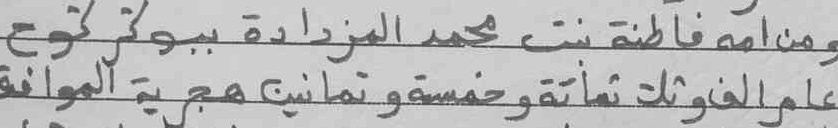 ومن امه فاطنة بنت محمد المزدادة ببوكركوح
عام الف وثلث مائة وخمسة وثمانين هجرية الموافق